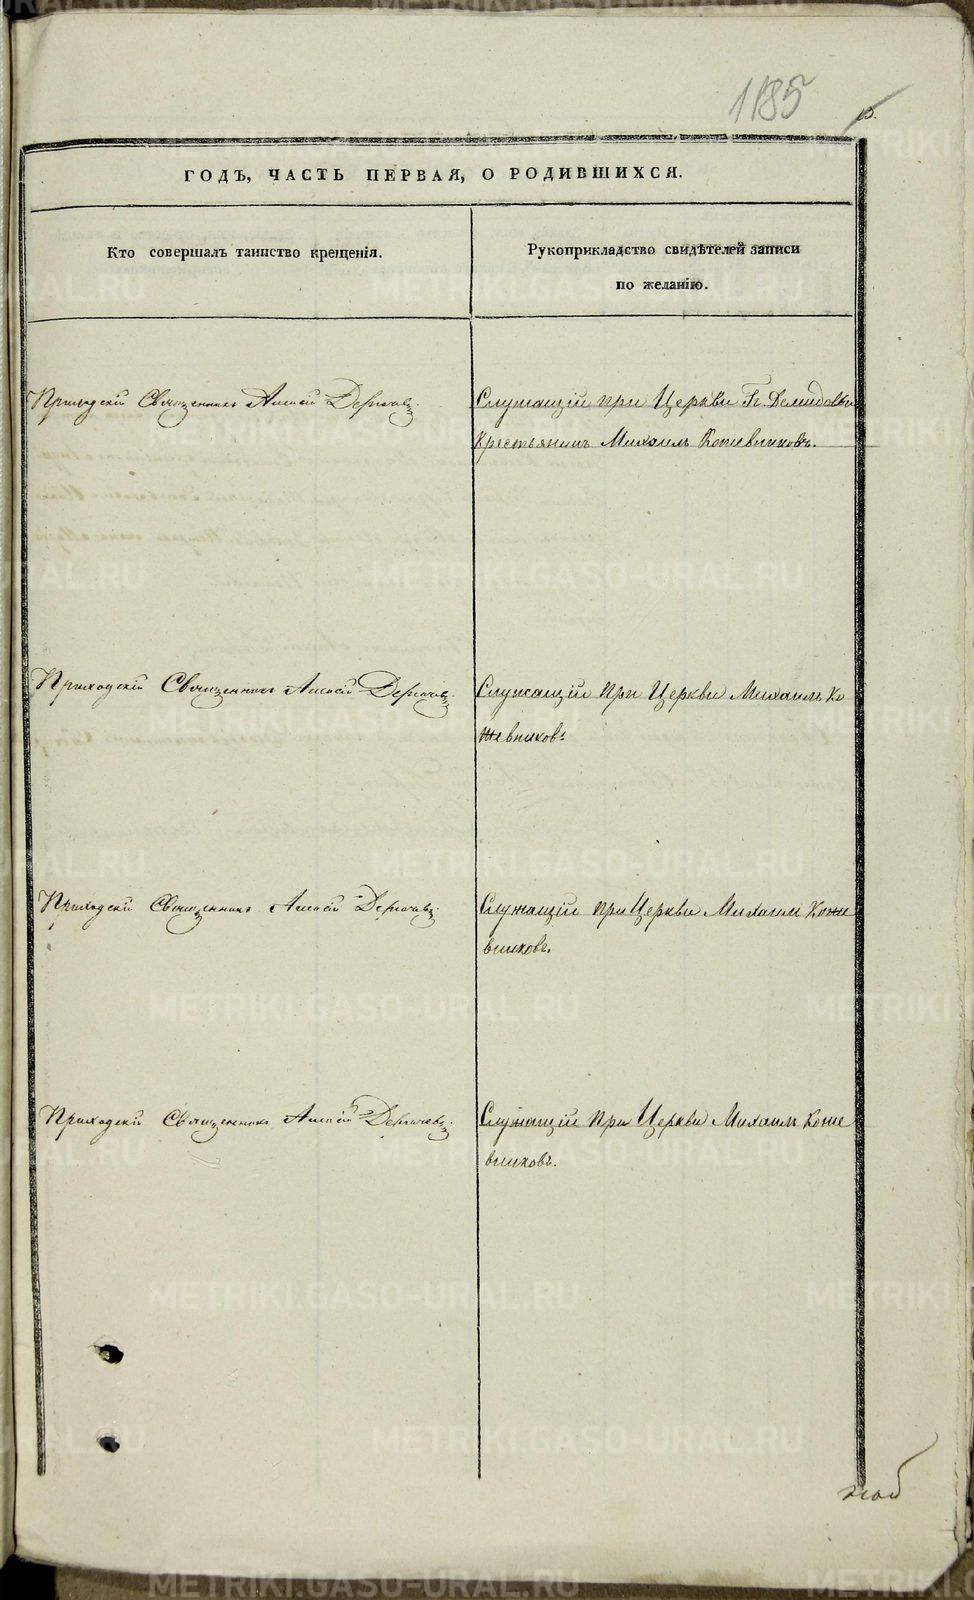 1185
ГОДЪ, ЧАСТЬ ПЕРВАЯ, О РОДИВШИХСЯ.
Кто совершалъ таинство крещенія.
Рукоприкладство свидѣтелей записи
по желанію.
Приходскій Священникъ Алексій Дерягинъ
Служащій при Церкви Гг. Демидовыхъ
Крестьянинъ Михаилъ Кожевниковъ.
Приходскій Священникъ Алексій
Служащій при Церкви Михаилъ Ко
жевниковъ
Приходскій Священникъ Алексій
Служащій при Церкви Михаилъ Коже
вниковъ.
Приходскій Священникъ Алексій
Служащій при Церкви Михаилъ Коже
вниковъ.
METRIKI.GASO-URAL.RU